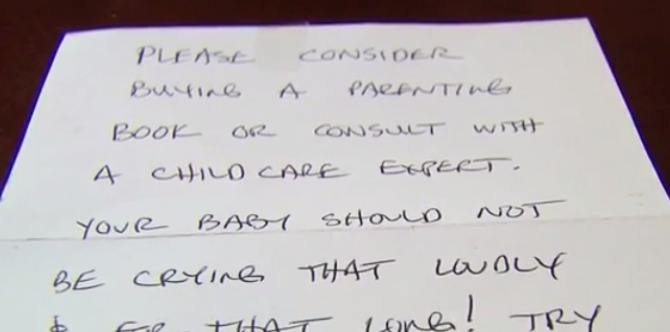 PLEASE CONSIDER
BUYING A PARENTING
BOOK OR CONSULT WITH
A CHILD CARE EXPERT.
YOUR BABY SHOULD NOT
BE CRYING THAT LOUDLY
& FOR THAT LONG! TRY